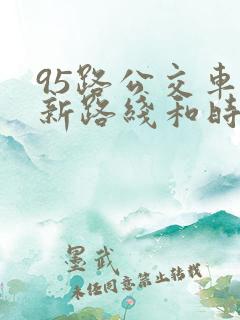 95路公交車
新路綫和時
墨武
未經同意禁止轉載